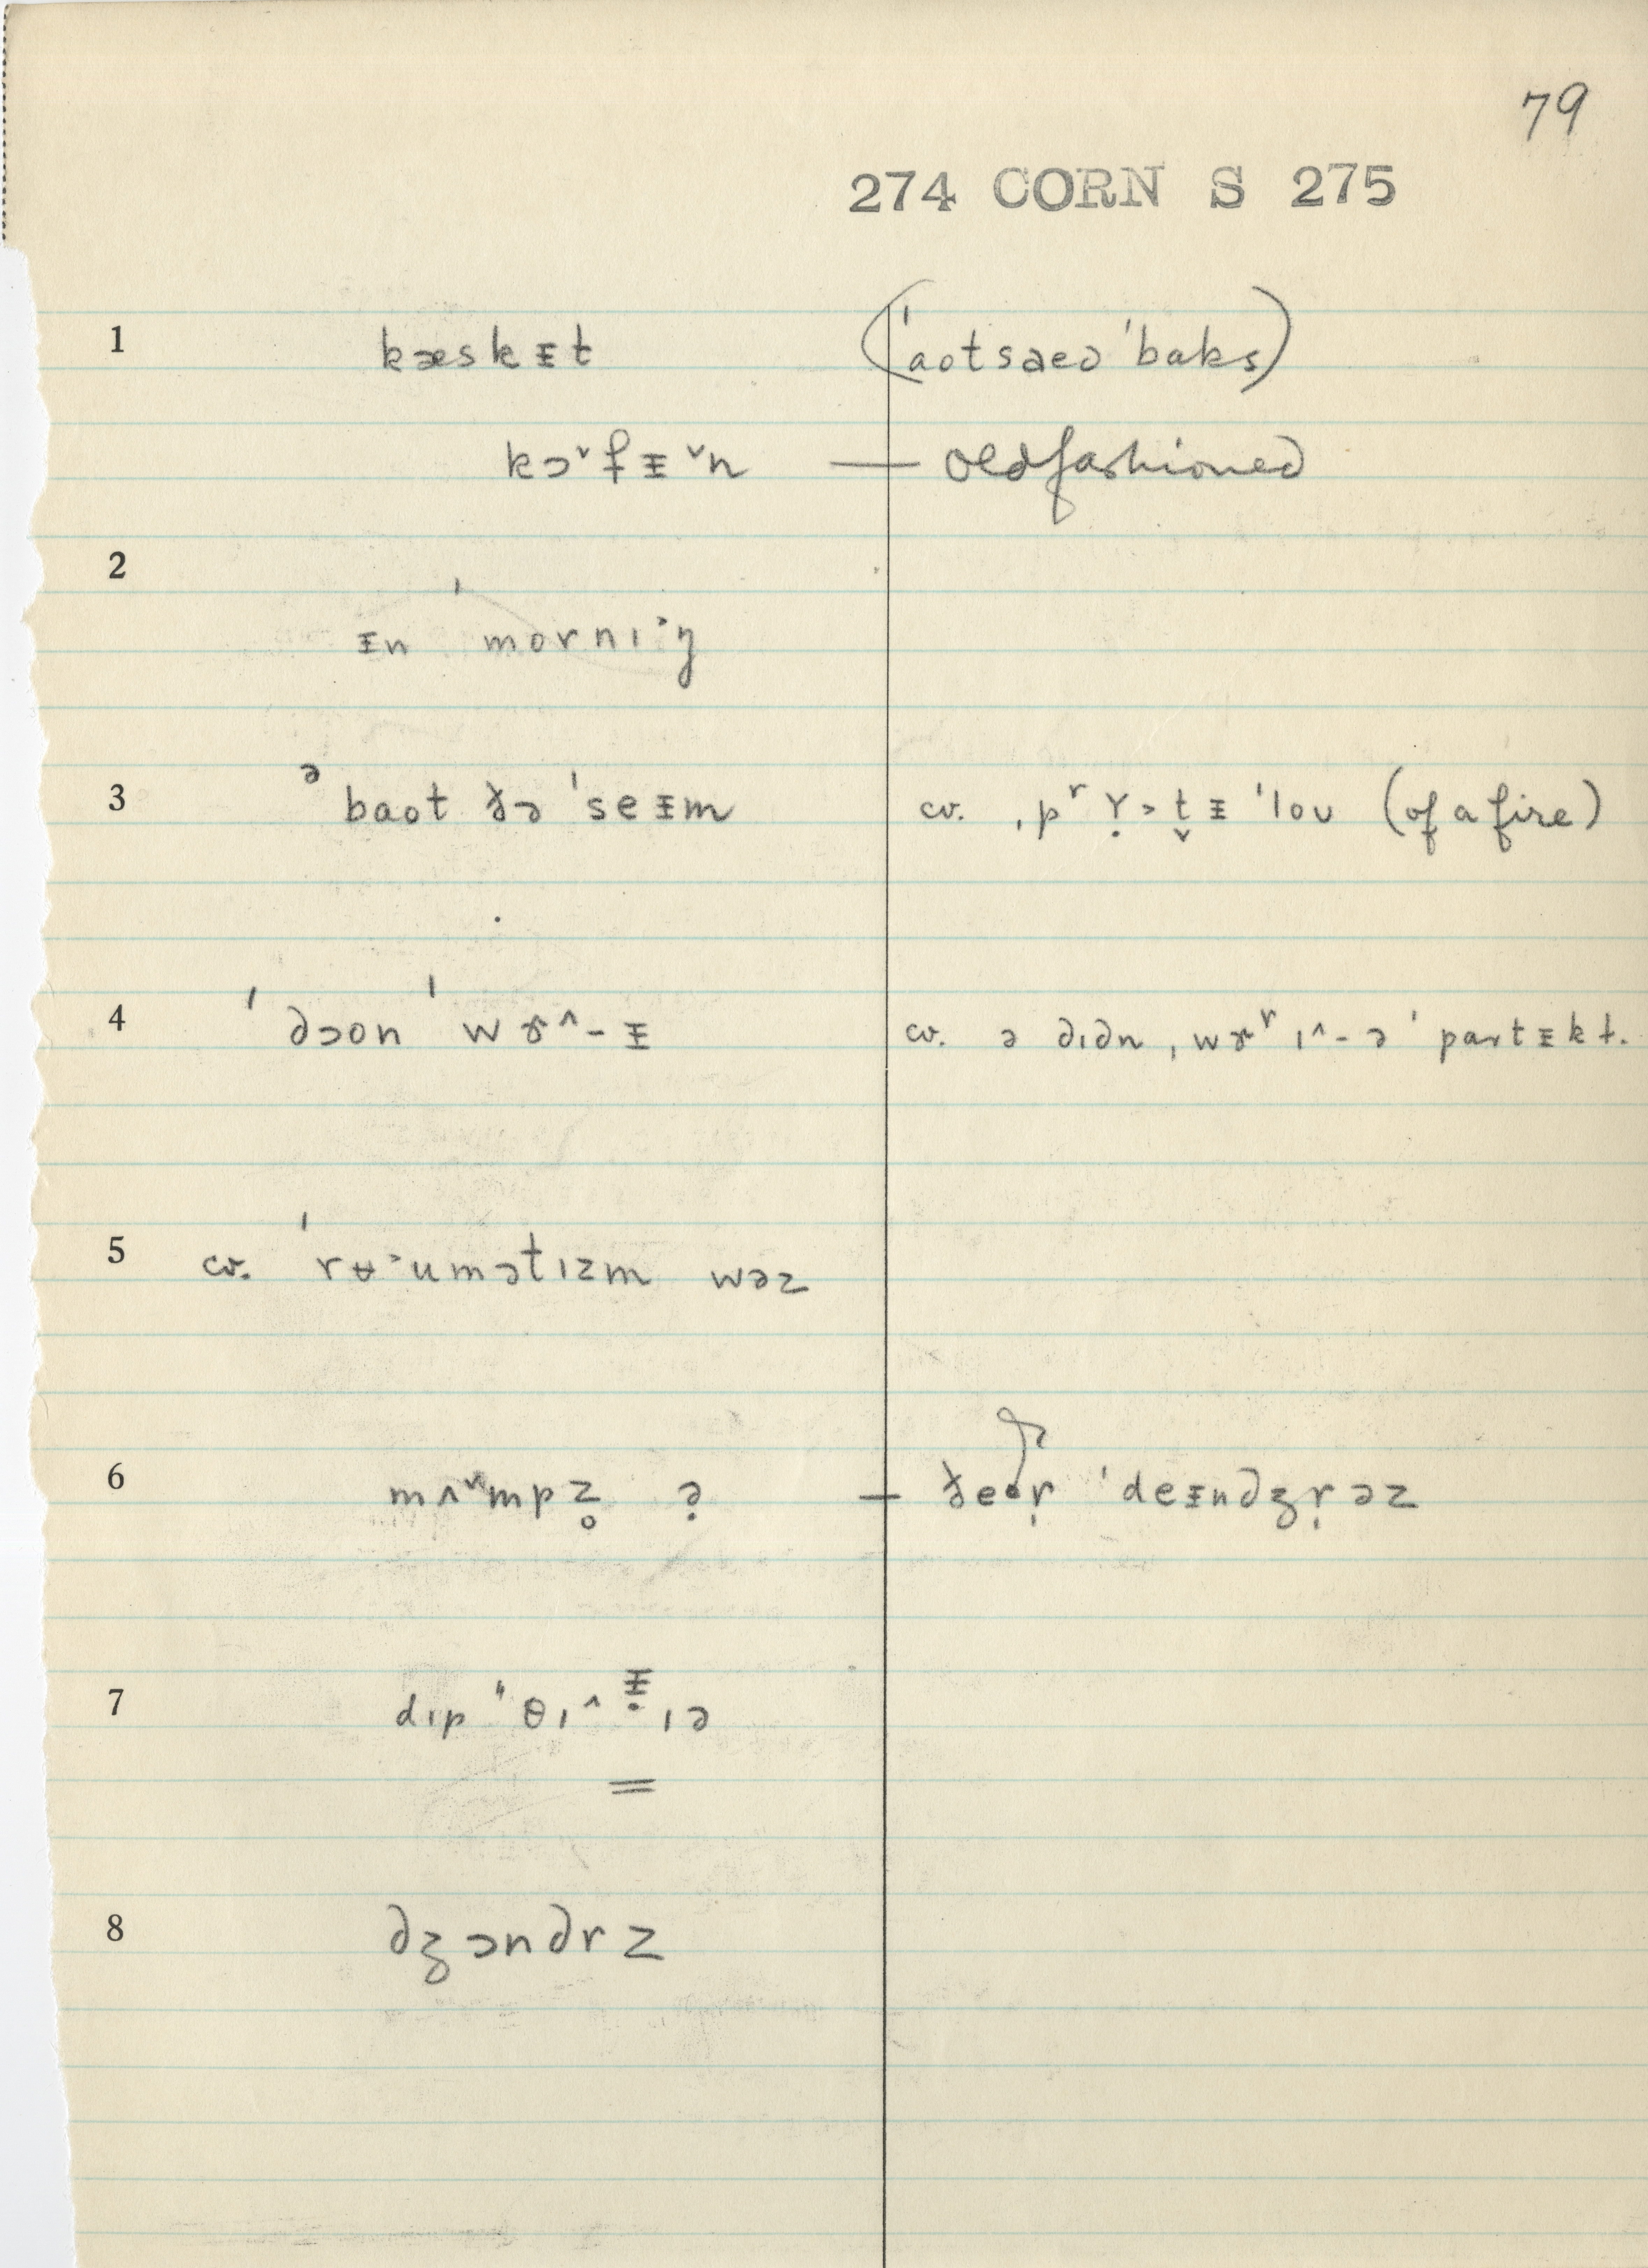 79
274 CORN S 275
1 kæskᵻt (ˈaotsaed ˈbaks)
kɔ˅fᵻ˅n — old fashioned
2
ᵻn ˈmornɪ˃ŋ
3 ᵊbaot ðə ˈseᵻm cv. ˌpʳʏ̣˃t̬ᵻ ˈloʊ (of a fire)
4 ˈdɔon ˈwɤ^-ᵻ cv. ə dɪdn ˌwɤʳɪ^-ə ˈpartᵻkt.
5 cv. ˈrʉ˃umətɪzm wəz
6 mʌ˅mpz̥ ə̣ — ðeər̩ ˈdeᵻndʒr̩əz
7 dɪp"θɪ^ᵻ̣ɪə
8 dʒɔndrz